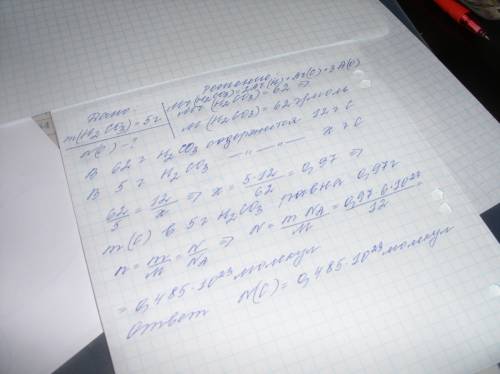 Дано:
m(H2CO3)=5г
N(C)-?
Решение:
Mr(H2CO3)=2Ar(H)+Ar(C)+3A(O)
Mr(H2CO3)=62 ⇒
M(H2CO3)=62г/моль
В 62 г H2CO3 содержится 12 г С
В 5 г H2CO3 —"—"— x г С
62/5 = 12/x ⇒ x = 5·12/62 = 0,97 ⇒
m(C) в 5 г H2CO3 равна 0,97г
n = m/M = N/NA ⇒ N = m NA/M = 0,97·6·10^23/12 =
= 0,485·10^23 молекул
Ответ N(C) = 0,485·10^23 молекул